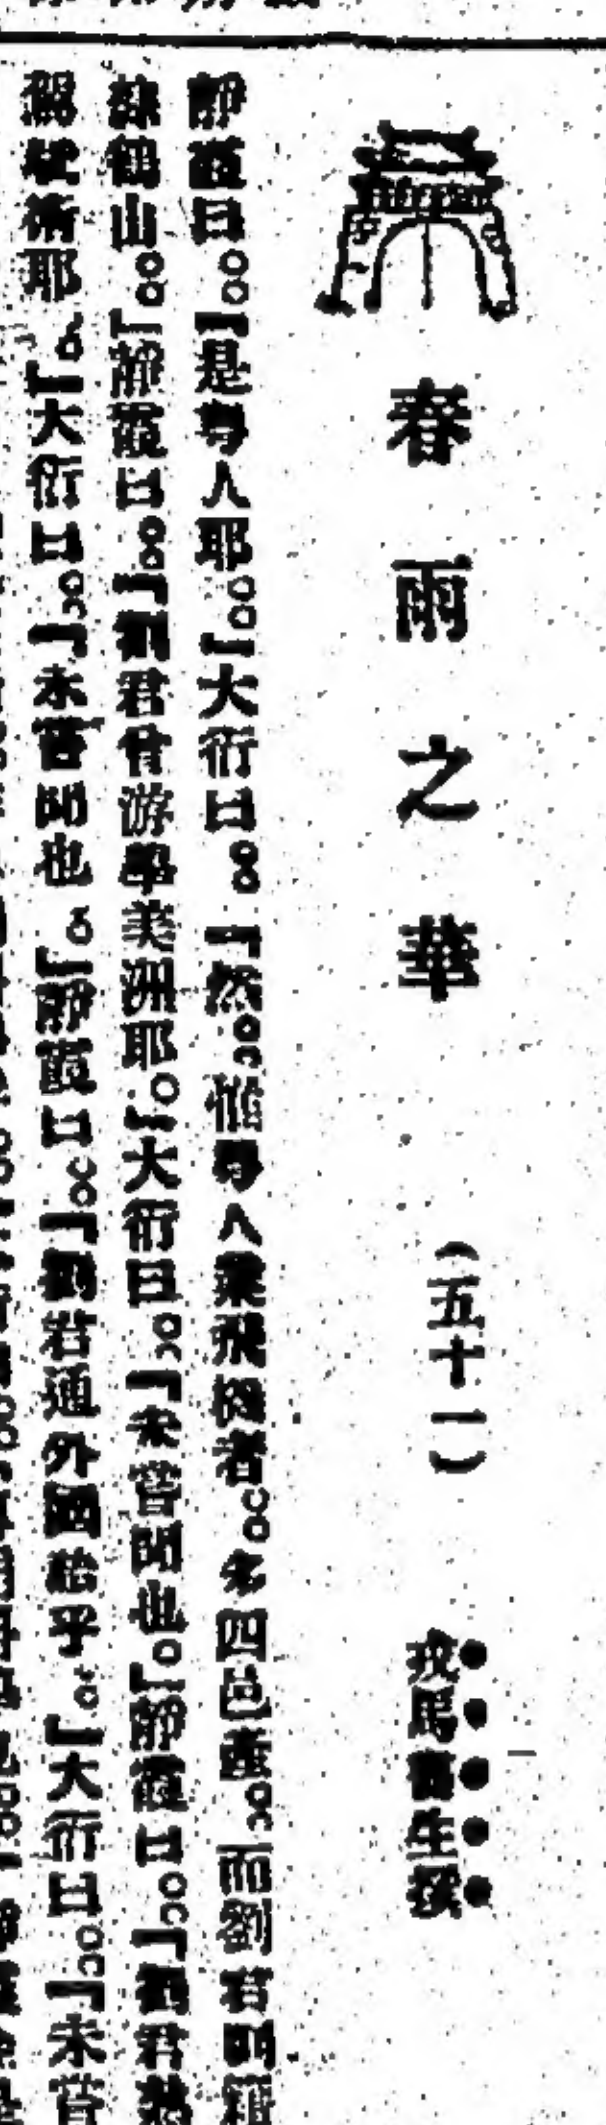 春雨之華
（五十一）
戎馬書生撰
靜霞曰。「是粵人耶。」大衍曰。「然。惟粵人業飛機者。多四邑產。而劉君則籍
鶴山。」靜霞曰。「劉君曾游學美洲耶。」大衍曰。「未嘗聞也。」靜霞曰。「劉君熟
駕駛術耶。」大衍曰。「未嘗聞也。」靜霞曰。「劉君通外國語乎。」大衍曰。「未嘗